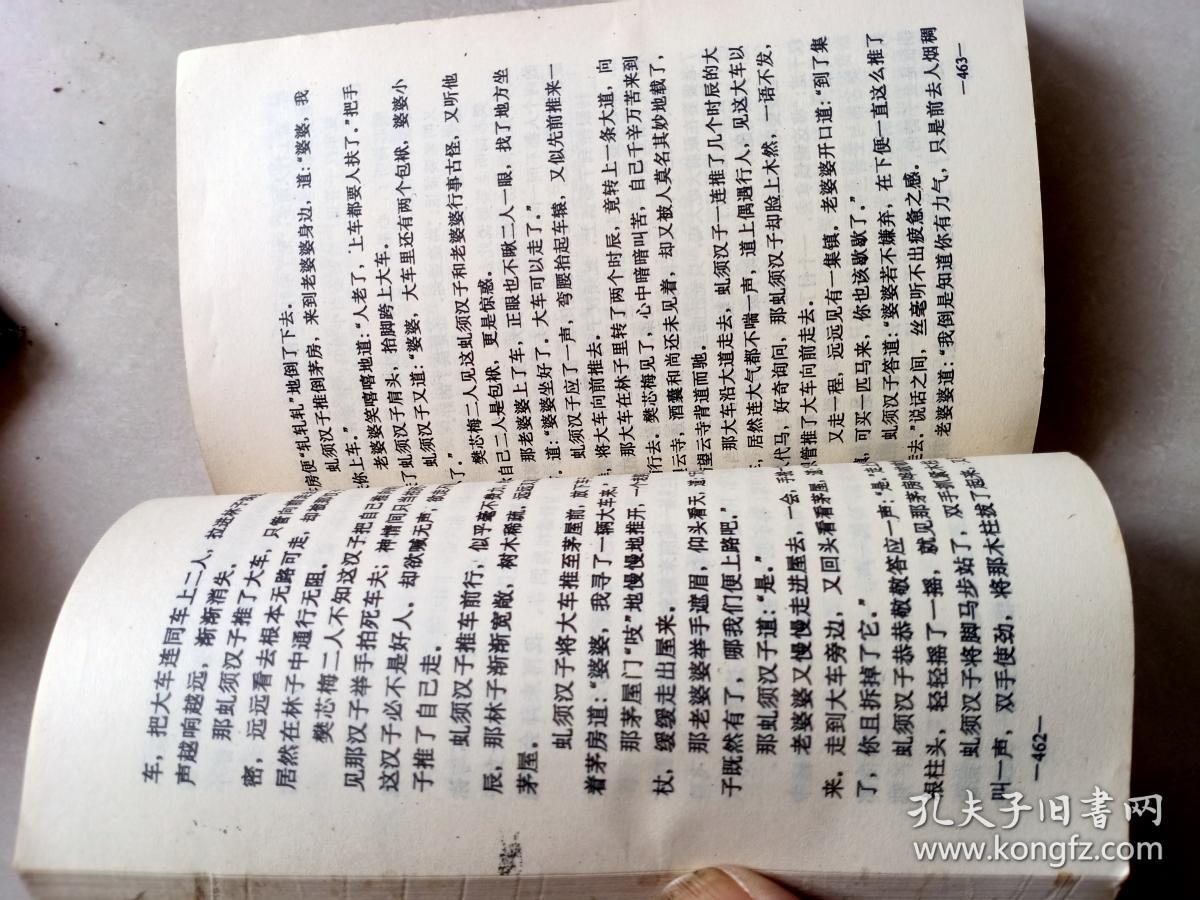 车，把大车连同车上二人，
声越响越远，渐渐消失。
那虬须汉子推了大车，只管向前
密，远远看去根本无路可走，却被
居然在林子中通行无阻。
樊芯梅二人不知这汉子把自己推
见那汉子举手拍死车夫；神情间只当
这汉子必不是好人。却欲喊无声，欲
子推了自己走。
虬须汉子推车前行，似乎毫不费力
辰，那林子渐渐宽敞，树木稀疏，远远
茅屋。
虬须汉子将大车推至茅屋前，放下
着茅房道：“婆婆，我寻了一辆大车来
那茅屋门“吱”地慢慢地推开，一个
杖，缓缓走出屋来。
那老婆婆举手遮眉，仰头看天，道
子既然有了，哪我们便上路吧。”
那虬须汉子道：“是。”
老婆婆又慢慢走进屋去，一会，手
来，走到大车旁边，又回头看看茅屋，道
了，你且拆掉了它。”
虬须汉子恭恭敬敬答应一声：“是。”
根柱头，轻轻摇了一摇，就见那茅房
虬须汉子将脚马步站了，双手抓紧
叫一声，双手使劲，将那木柱拔了起来，
—462—
房便“轧轧轧”地倒了下去。
虬须汉子推倒茅房，来到老婆婆身边，道：“婆婆，我
你上车。”
老婆婆笑嘻嘻地道：“人老了，上车都要人扶了。”把手
了虬须汉子肩头，抬脚跨上大车。
虬须汉子又道：“婆婆，大车里还有两个包袱，婆婆小
了。”
樊芯梅二人见这虬须汉子和老婆婆行事古怪，又听他
自己二人是包袱，更是惊惑。
那老婆婆上了车，正眼也不瞅二人一眼，找了地方坐
，道：“婆婆坐好了。大车可以走了。”
虬须汉子应了一声，弯腰抬起车辕，又似先前推来一
，将大车向前推去。
那大车在林子里转了两个时辰，竟转上一条大道，向
行去。樊芯梅见了，心中暗暗叫苦，自己千辛万苦来到
云寺，酒囊和尚还未见着，却又被人莫名其妙地载了，
望云寺背道而驰。
那大车沿大道走去，虬须汉子一连推了几个时辰的大
，居然连大气都不喘一声，道上偶遇行人，见这大车以
代马，好奇询问，那虬须汉子却脸上木然，一语不发，
管推了大车向前走去。
又走一程，远远见有一集镇，老婆婆开口道：“到了集
，可买一匹马来，你也该歇歇了。”
虬须汉子答道：“婆婆若不嫌弃，在下便一直这么推了
走去。”说话之间，丝毫听不出疲惫之感。
老婆婆道：“我倒是知道你有力气，只是前去人烟稠
—463—
孔夫子旧书网
www.kongfz.com